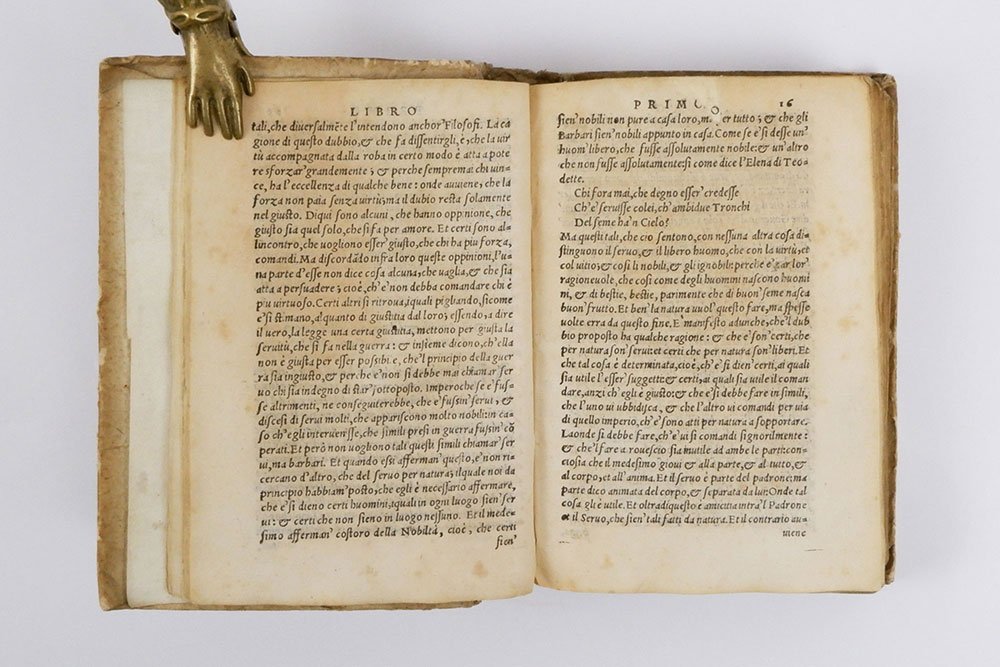 LIBRO
tali, che diversalmēte l'intendono anchor' Filosofi. La ca
gione di questo dubbio, & che fa dissentirgli, è, che la vir
tù accompagnata dalla roba in certo modo è atta a pote
re sforzar'grandemente; & perche sempremai chi vin-
ce, ha l'eccellenza di qualche bene: onde auuiene, che la
forza non paia senza virtù; ma il dubio resta solamente
nel giusto. Di qui sono alcuni, che hanno oppinione, che
giusto sia quel solo, che si fa per amore. Et certi sono al-
lincontro, che uogliono esser' giusto, che chi ha piu forza,
comandi. Ma discordādo infra loro queste oppinioni, l'u-
na parte d'esse non dice cosa alcuna, che uaglia, & che sia
atta a persuadere; cioè, ch'e' non debba comandare chi è
piu virtuoso. Certi altri si ritroua, i quali pigliando, sicome
e'si stimano, al quanto di giustitia dal loro; essendo, a dire
il uero, la legge una certa giustitia, mettono per giusta la
seruitù, che si fa nella guerra: & insieme dicono, ch'ella
non è giusta per esser possibile, che'l principio della guer
ra sia ingiusto, & perche e'non si debbe mai chiamar'ser
uo chi sia indegno di star'sottoposto. Imperoche se e'fus-
se altrimenti, ne conseguiterebbe, che e'fussin'serui, &
discesi di serui molti, che appariscono molto nobili: in ca-
so ch'egli interuenisse, che simili presi in guerra fussin'cō
perati. Et però non uogliono tali questi simili chiamar'ser
ui, ma barbari. Et quando essi afferman'questo, e'non ri-
cercano d'altro, che del seruo per natura; il quale noi da
principio habbiam'posto; che egli è necessario affermare,
che e'si dieno certi huomini, i quali in ogni luogo sien'ser
ui: & certi che non sieno in luogo nessuno. Et il mede-
simo afferman' costoro della Nobiltà, cioè, che certi
sien'
PRIMO 16
sien' nobili non pure a casa loro, ma per tutto; & che gli
Barbari sien'nobili appunto in casa. Come se e'si desse un'
huom'libero, che fusse assolutamente nobile: & un'altro
che non fusse assolutamente: si come dice l'Elena di Teo-
dette.
Chi fora mai, che degno esser'credesse
Ch'e'seruisse colei, ch'ambidue Tronchi
Del seme ha'n Cielo?
Ma questi tali, che cio sentono, con nessuna altra cosa di-
stinguono il seruo, & il libero huomo, che con la virtù, et
col uitio; & così li nobili, & gli ignobili: perche e'gar lor'
ragioneuole, che cosi come degli huomini nascono huomi
ni, & di bestie, bestie, parimente che di buon'seme nasca
buon'frutto. Et ben'la natura uuol'questo fare, ma spesse
uolte erra da questo fine. E' manifesto adunche, che'l dub
bio proposto ha qualche ragione: & che e'son'certi, che
per natura son'serui: et certi che per natura son'liberi. Et
che tal cosa è determinata, cioè, ch'e'si dien'certi, ai quali
sia utile l'esser'suggetti: & certi, ai quali sia utile il coman
dare, anzi ch'egli è giusto: & che e'si debbe fare in simili,
che l'uno ui ubbidisca, & che l'altro ui comandi per uia
di quello imperio, ch'e'sono atti per natura a sopportare.
Laonde si debbe fare, ch'e'ui si comandi signorilmente:
& che'l fare a rouescio sia inutile ad ambe le parti: con-
ciosia che il medesimo gioui & alla parte, & al tutto, &
al corpo, et all'anima. Et il seruo è parte del padrone: ma
parte dico animata del corpo, & separata da lui: Onde tal
cosa gli è utile. Et oltradiquesto è amicitia intra'l Padrone
& il Seruo, che sien'tali fatti da natura. Et il contrario au-
uiene